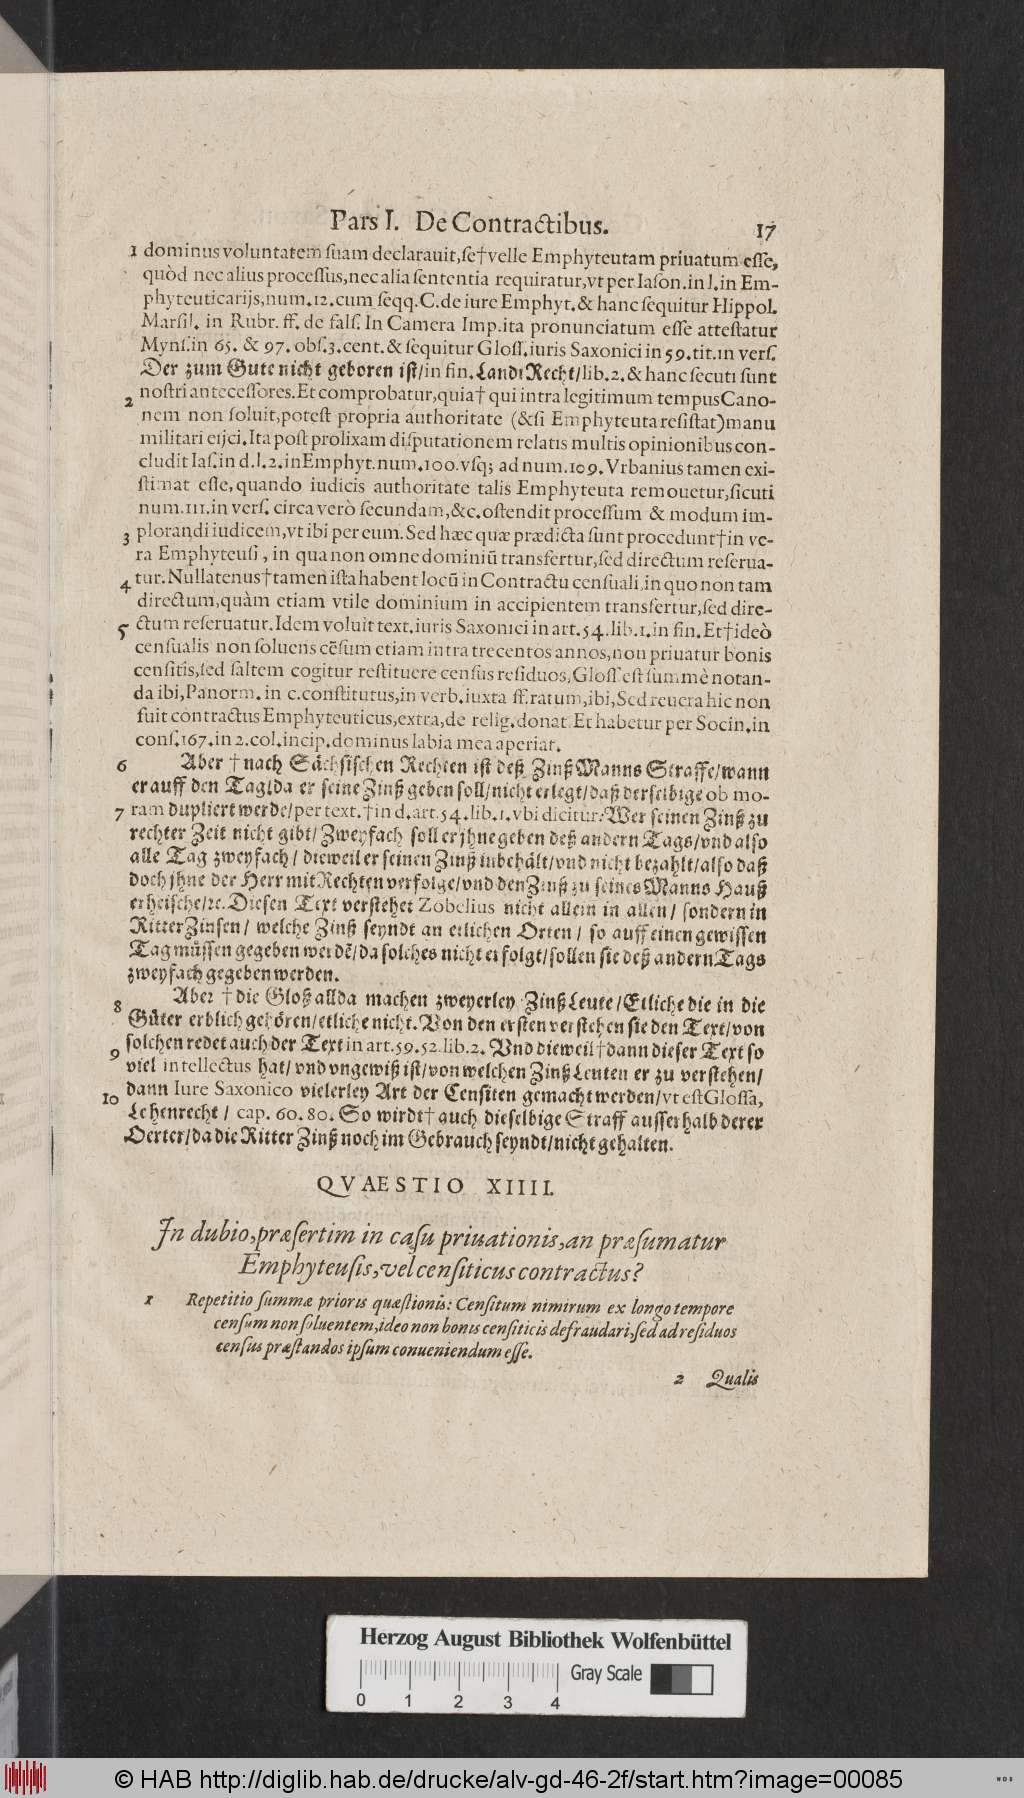 Pars I. De Contractibus. 17
1 dominus voluntatem suam declarauit, se † velle Emphyteutam priuatum esse,
quòd nec alius processus, nec alia sententia requiratur, vt per Iason. in l. in Em-
phyteuticarijs, num. 12. cum seqq. C. de iure Emphyt. & hanc sequitur Hippol.
Marsil. in Rubr. ff. de fals. In Camera Imp. ita pronunciatum esse attestatur
Myns. in 65. & 97. obs. 3. cent. & sequitur Gloss. iuris Saxonici in 59. tit. in vers.
Der zum Gute nicht geboren ist/ in fin. LandtRecht/ lib. 2. & hanc secuti sunt
2 nostri antecessores. Et comprobatur, quia † qui intra legitimum tempus Cano-
nem non soluit, potest propria authoritate (& si Emphyteuta resistat) manu
militari eijci. Ita post prolixam disputationem relatis multis opinionibus con-
cludit Ias. in d. l. 2. in Emphyt. num. 100. vsq; ad num. 109. Vrbanius tamen exi-
stimat esse, quando iudicis authoritate talis Emphyteuta remouetur, sicuti
num. 111. in vers. circa verò secundam, &c. ostendit processum & modum im-
3 plorandi iudicem, vt ibi per eum. Sed hæc quæ prædicta sunt procedunt † in ve-
ra Emphyteusi, in qua non omne dominiū transfertur, sed directum reserua-
4 tur. Nullatenus † tamen ista habent locū in Contractu censuali, in quo non tam
directum, quàm etiam vtile dominium in accipientem transfertur, sed dire-
5 ctum reseruatur. Idem voluit text. iuris Saxonici in art. 54. lib. 1. in fin. Et † ideò
censualis non soluens cēsum etiam intra trecentos annos, non priuatur bonis
censitis, sed saltem cogitur restituere census residuos, Gloss. est summè notan-
da ibi, Panorm. in c. constitutus, in verb. iuxta ff. ratum, ibi, Sed reuera hic non
fuit contractus Emphyteuticus, extra, de relig. donat. Et habetur per Socin. in
cons. 167. in 2. col. incip. dominus labia mea aperiat.
6 Aber † nach Sächsischen Rechten ist deß ZinßManns Straffe/ wann
er auff den Tag/ da er seine Zinß geben soll/ nicht erlegt/ daß derselbige ob mo-
7 ram dupliert werde/ per text. † in d. art. 54. lib. 1. vbi dicitur: Wer seinen Zinß zu
rechter Zeit nicht gibt/ Zweyfach soll er jhne geben deß andern Tags/ vnd also
alle Tag zweyfach/ dieweil er seinen Zinß inbehält/ vnd nicht bezahlt/ also daß
doch jhne der Herr mit Rechten verfolge/ vnd den Zinß zu seines Manns Hauß
erheische/ꝛc. Diesen Text verstehet Zobelius nicht allein in allen/ sondern in
RitterZinsen/ welche Zinß seyndt an etlichen Orten/ so auff einen gewissen
Tag müssen gegeben werdē/ da solches nicht erfolgt/ sollen sie deß andern Tags
zweyfach gegeben werden.
8 Aber † die Gloß allda machen zweyerley ZinßLeute/ Etliche die in die
Güter erblich gehören/ etliche nicht. Von den ersten verstehen sie den Text/ von
solchen redet auch der Text in art. 59. 52. lib. 2. Vnd dieweil † dann dieser Text so
9 viel intellectus hat/ vnd vngewiß ist/ von welchen ZinßLeuten er zu verstehen/
dann Iure Saxonico vielerley Art der Censiten gemacht werden/ vt est Glossa,
10 Lehenrecht/ cap. 60. 80. So wirdt † auch dieselbige Straff ausserhalb derer
Oerter/ da die Ritter Zinß noch im Gebrauch seyndt/ nicht gehalten.
QVAESTIO XIIII.
In dubio, præsertim in casu priuationis, an præsumatur
Emphyteusis, vel censiticus contractus?
1 Repetitio summæ prioris quæstionis: Censitum nimirum ex longo tempore
censum non soluentem, ideo non bonis censiticis defraudari, sed ad residuos
census præstandos ipsum conueniendum esse.
2 Qualis
Herzog August Bibliothek Wolfenbüttel
Gray Scale
0 1 2 3 4
© HAB http://diglib.hab.de/drucke/alv-gd-46-2f/start.htm?image=00085